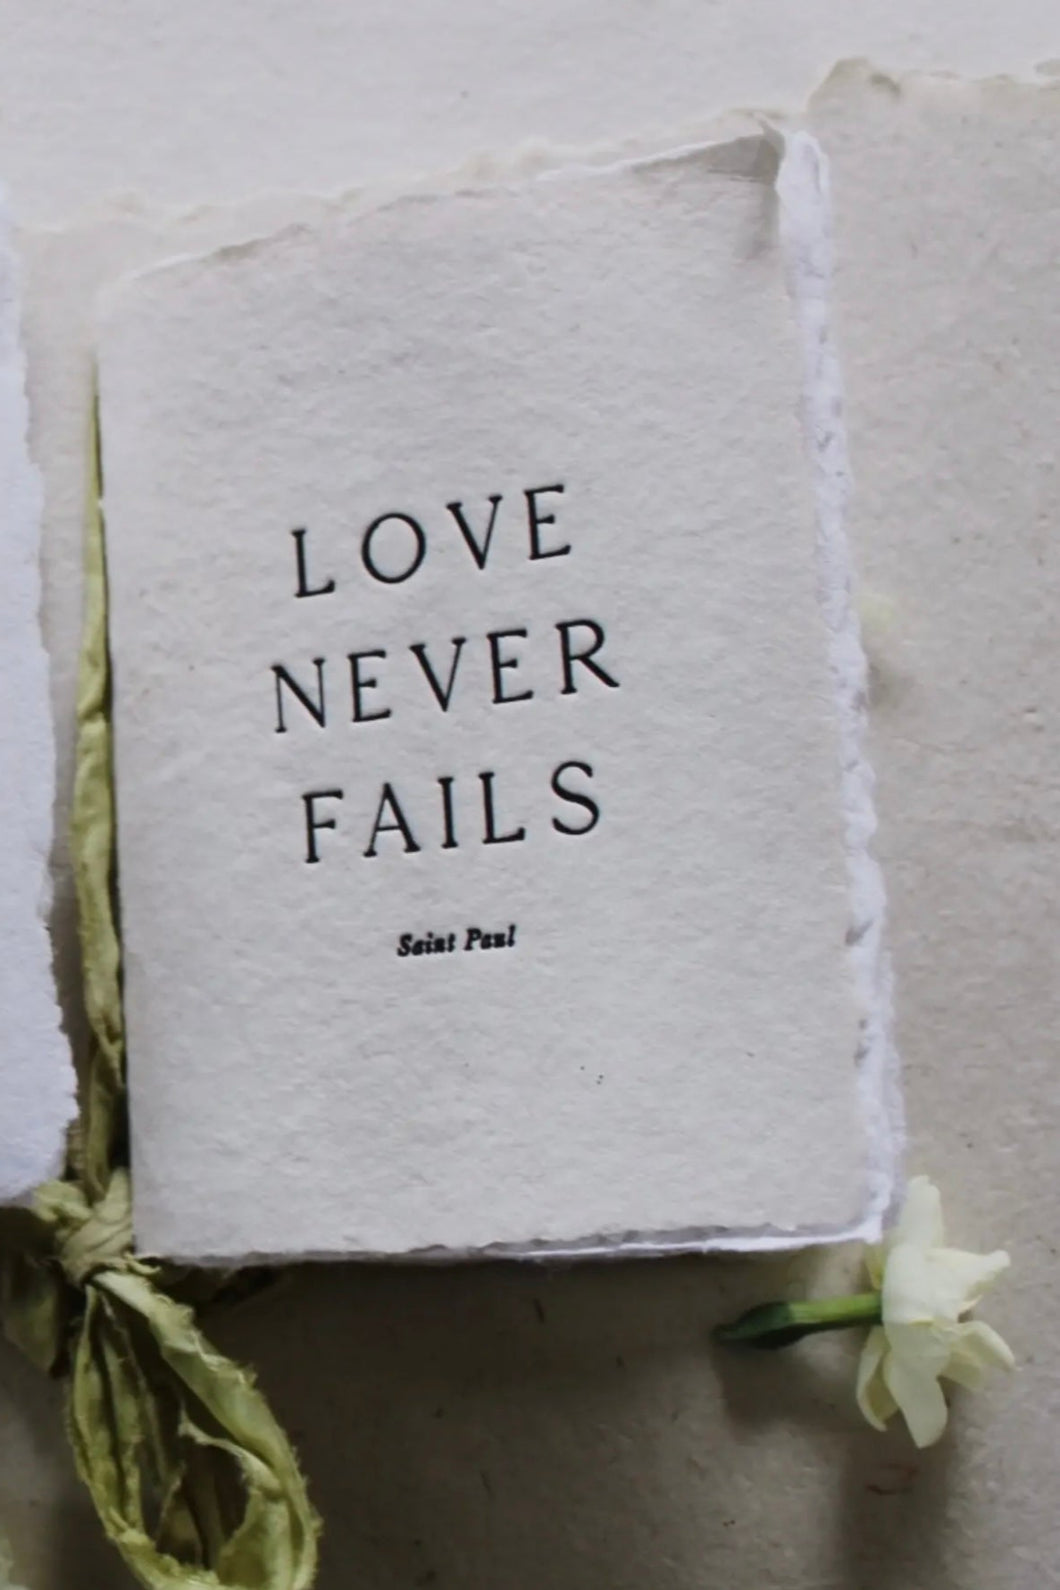 LOVE
NEVER
FAILS
Saint Paul